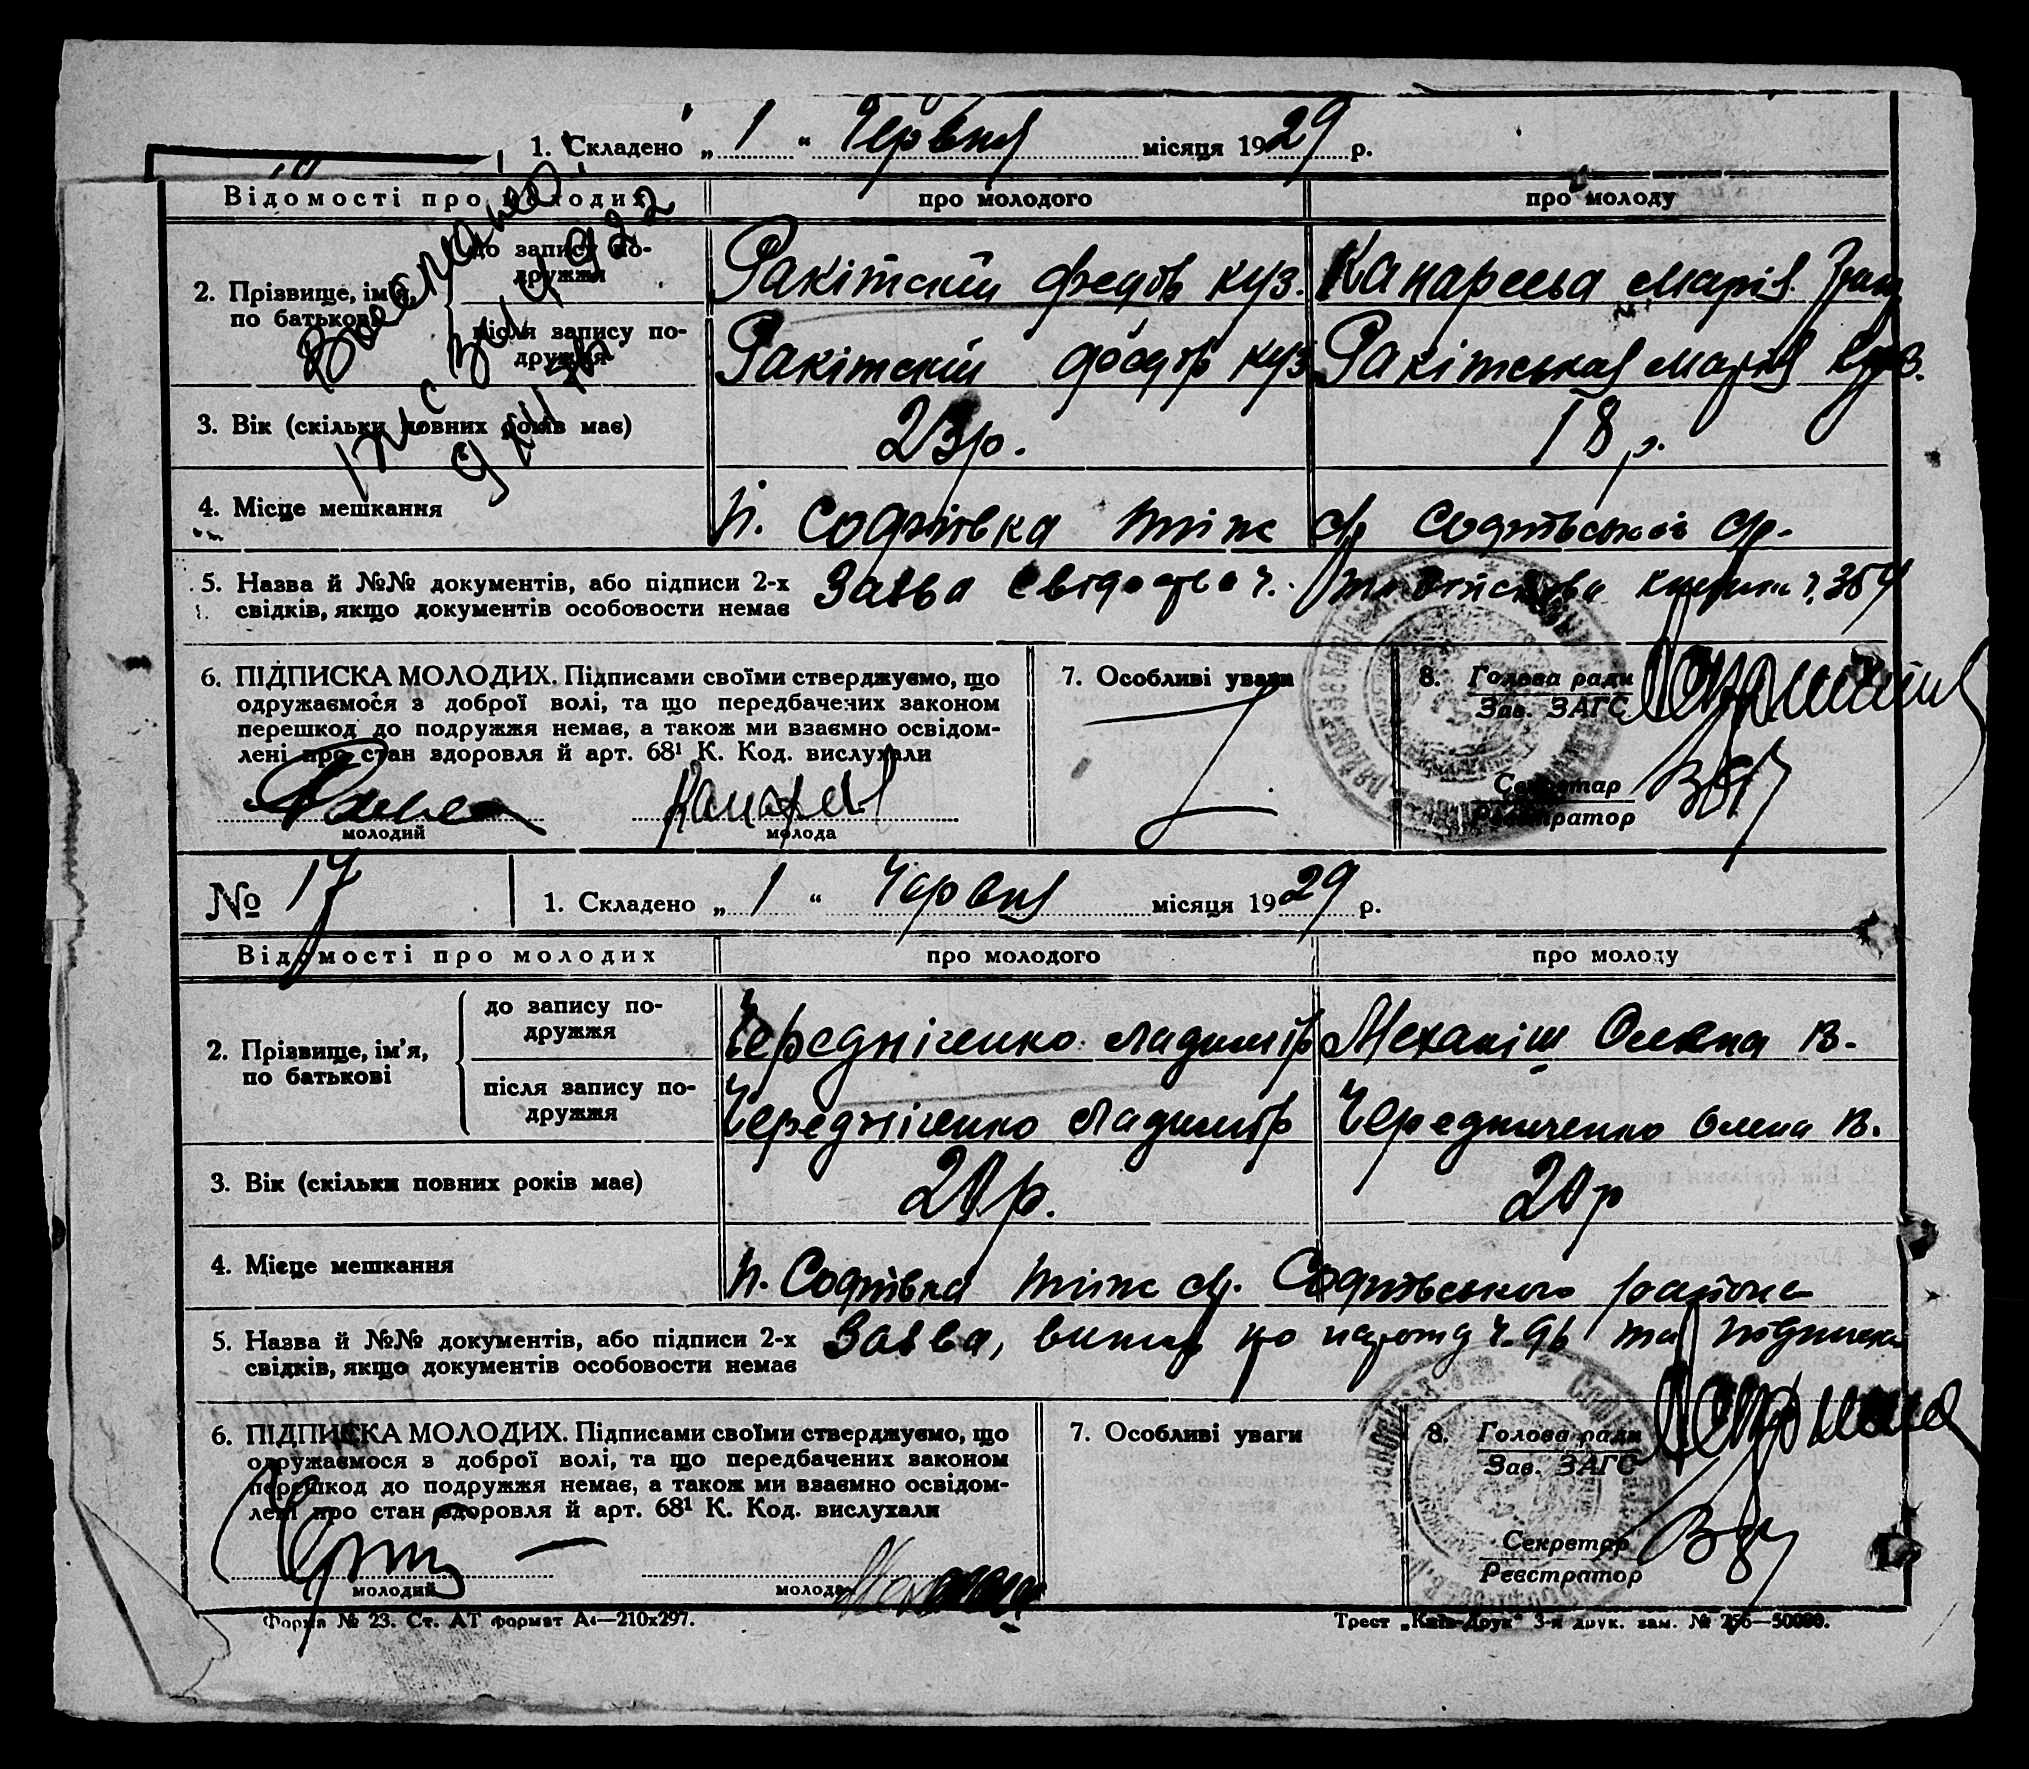 1. Складено „ 1 “ Червня місяця 1929 р.
Відомості про молодих про молодого про молоду
2. Прізвище, ім'я, по батькові
до запису подружжя Ракітскій Федір Куз. Канареєва Марія
після запису подружжя Ракітскій Федір Куз. Ракітська Марія
3. Вік (скільки повних років має) 23 р. 18 р.
4. Місце мешкання п. Софіївка тіпс с/р Софіївської с/р.
5. Назва й №№ документів, або підписи 2-х Заява
свідків, якщо документів особовости немає
6. ПІДПИСКА МОЛОДИХ. Підписами своїми стверджуємо, що
одружаємося з доброї волі, та що передбачених законом
перешкод до подружжя немає, а також ми взаємно освідом-
лені про стан здоровля й арт. 68¹ К. Код. вислухали
молодий молода
7. Особливі уваги
8. Голова ради
Зав. ЗАГС
Секретар
Реєстратор
№ 17 1. Складено „ 1 “ Червня місяця 1929 р.
Відомості про молодих про молодого про молоду
2. Прізвище, ім'я, по батькові
до запису подружжя Чередніченко Ладимір Механіш Олена В.
після запису подружжя Чередніченко Ладимір Чередниченко Олена В.
3. Вік (скільки повних років має) 20 р
4. Місце мешкання п. Софіївка с/р. Софіївського района
5. Назва й №№ документів, або підписи 2-х Заява, по та підписка
свідків, якщо документів особовости немає
6. ПІДПИСКА МОЛОДИХ. Підписами своїми стверджуємо, що
одружаємося з доброї волі, та що передбачених законом
перешкод до подружжя немає, а також ми взаємно освідом-
лені про стан здоровля й арт. 68¹ К. Код. вислухали
молодий молода
7. Особливі уваги
8. Голова ради
Зав. ЗАГС
Секретар
Реєстратор
Форма № 23. Ст. АТ формат А4—210х297. Трест „Київ-Друк“ 3-я друк. зам. № 256—50000.